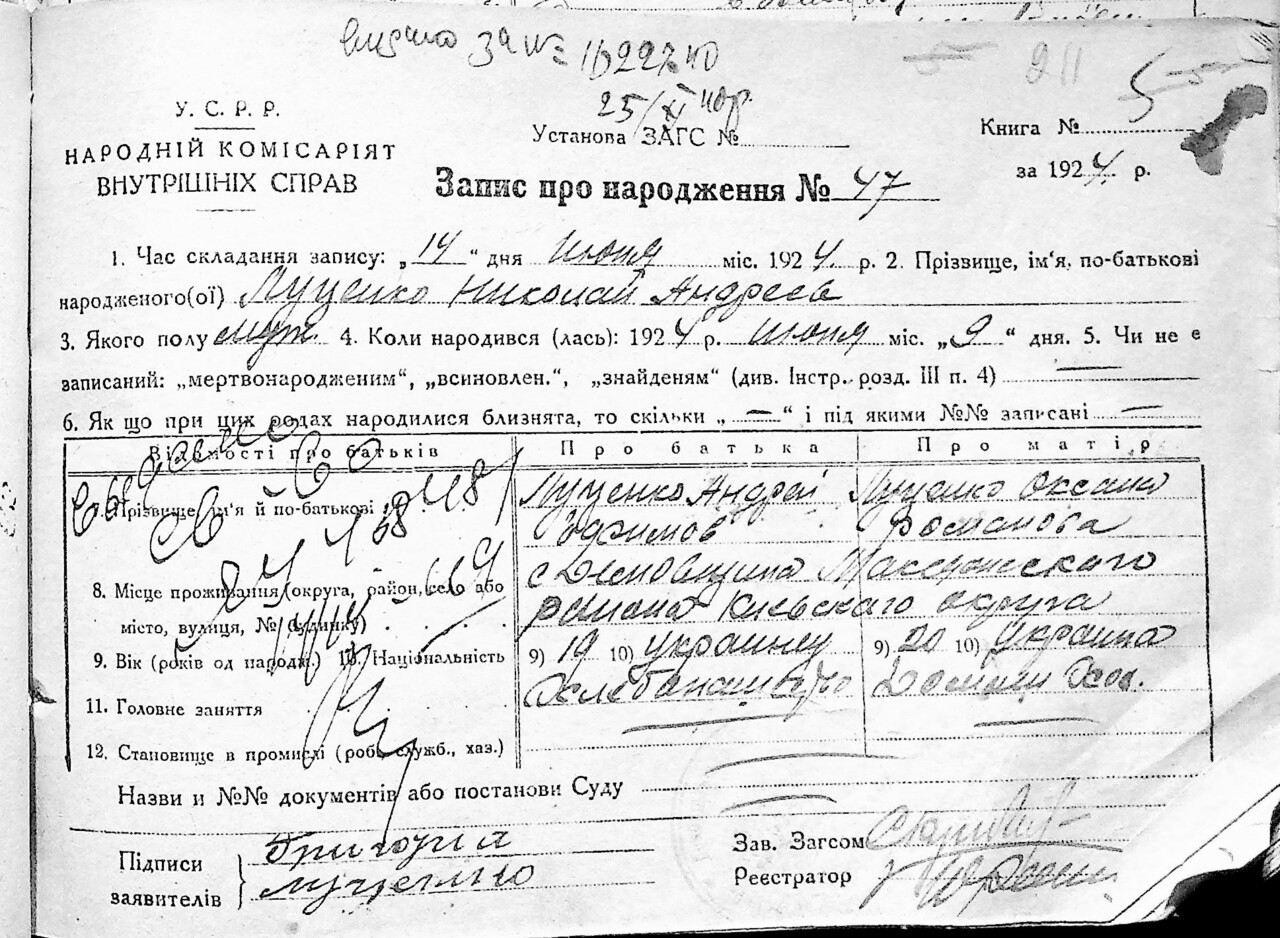 видано за № 1622740
25/XI 40р.
211
5
У. С. Р. Р.
НАРОДНІЙ КОМІСАРІЯТ
ВНУТРІШНІХ СПРАВ
Установа ЗАГС №
Книга №
за 1924. р.
Запис про народження № 47
1. Час складання запису: „14“ дня июня міс. 1924. р. 2. Прізвище, ім‘я, по-батькові
народженого(ої) Луценко Николай Андреев
3. Якого полу муж. 4. Коли народився (лась): 1924 р. июня міс. „9“ дня. 5. Чи не є
записаний: „мертвонародженим“, „всиновлен.“, „знайденям“ (див. Інстр. розд. III п. 4) —
6. Як що при цих родах народилися близнята, то скільки „—“ і під якими №№ записані —
Відомості про батьків
Про батька
Про матір
Прізвище, ім‘я й по-батькові
Луценко Андрей
Луценко Оксана
Романова
8. Місце проживання (округа, район, село або
місто, вулиця, № будинку)
района Киевскаго округа
9. Вік (років од народж.) 10. Національність
9) 19 10) украинец
9) 20 10) украинка
11. Головне заняття
Хлебопашество
Домаш. Хоз.
12. Становище в промислі (роб., служб., хаз.)
Назви и №№ документів або постанови Суду
Підписи
заявителів
Григорий
Луценко
Зав. Загсом
Реєстратор